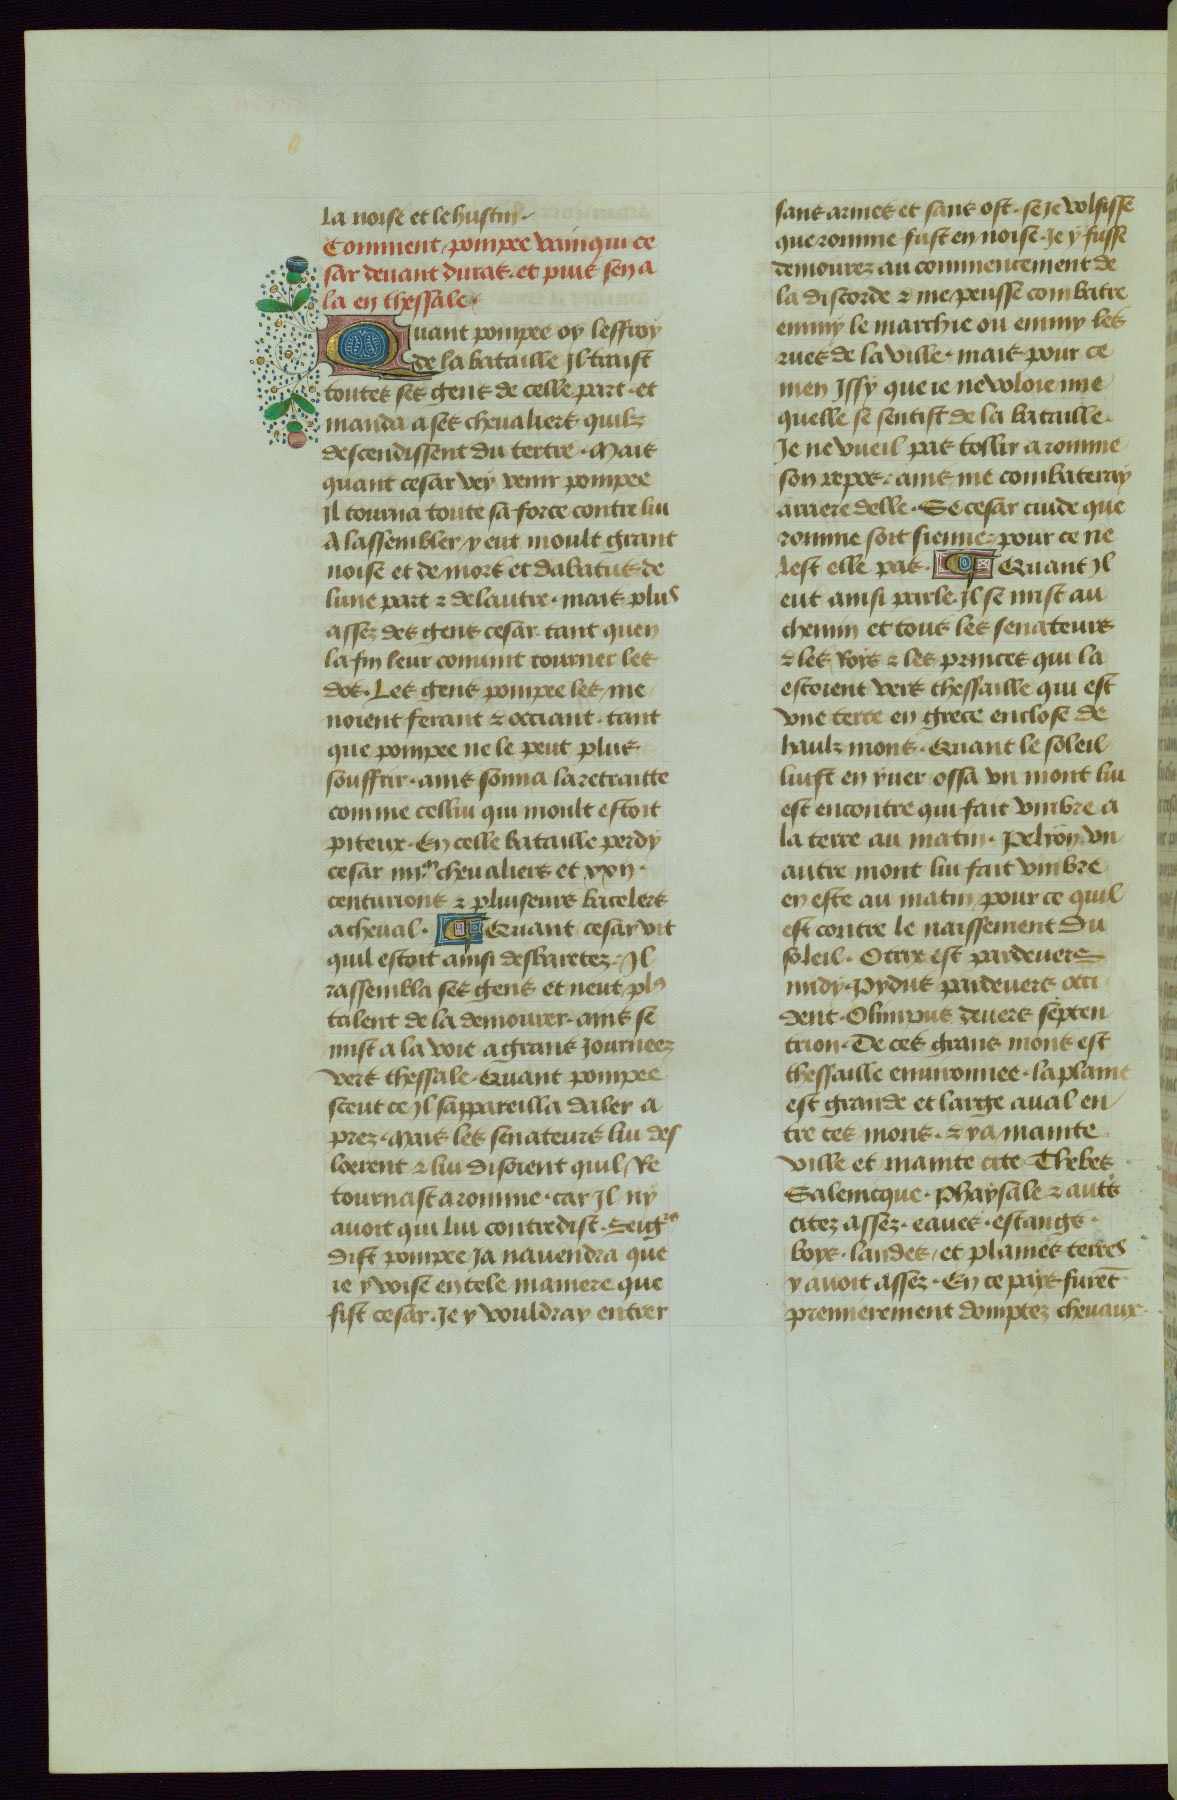 la noise et le hustin.
Comment pompee vainqui ce
sar deuant duras. et puis sen a
la en thessale.
Quant pompee oy leffroy
de la bataille Il traist
toutes ses gens de celle part. et
manda a ses cheualiers quilz
descendissent du tertre. Mais
quant cesar vey venir pompee
Il tourna toute sa force contre lui
A lassembler y eut moult grant
noise et de mors et dabatus de
lune part & de lautre. mais plus
assez des gens cesar. tant quen
la fin leur conuint tourner les
dos. Les gens pompee les me
noient ferant & occiant. tant
que pompee ne le peut plus
souffrir. ains sonna la retraitte
comme cellui qui moult estoit
piteux. En celle bataille perdy
cesar iiii.m cheualiers et xxii.
centurions & pluiseurs bacelers
a cheual. Quant cesar vit
quil estoit ainsi desbaretez. Il
rassembla ses gens et neut pl9
talent de la demourer. ains se
mist a la voie a grans Journees
vers thessale. Quant pompee
sceut ce Il sappareilla daler a
prez. Mais les senateurs lui des
loerent & lui disoient quil Re
tournast a romme. car Il ny
auoit qui lui contredist. Seigrs
dist pompee Ja nauendra que
ie y voise en tele maniere que
fist cesar. Je y vouldray entrer
sans armes et sans ost. se ie volsisse
que romme fust en noise. Je y fusse
demourez au commencement de
la discorde & me peusse combatre
emmy le marchie ou emmy les
rues de la ville. mais pour ce
men Issy que ie ne voloie mie
quelle se sentist de la bataille.
Je ne vueil pas tollir a romme
son repos. ains me combateray
arriere delle. Se cesar cuide que
romme soit sienne. pour ce ne
lest elle pas. Quant Il
eut ainsi parle. Il se mist au
chemin et tous les senateurs
& les Roys & les princes qui la
estoient vers thessaille qui est
vne terre en grece enclose de
haulz mons. Quant le soleil
luist en yuer ossa vn mont lui
est encontre qui fait vmbre a
la terre au matin. Pelyon vn
autre mont lui fait vmbre
en este au matin pour ce quil
est contre le naissement du
soleil. Otrix est pardeuers
midy. Pydus pardeuers occi
dent. Olimpus deuers septen
trion. De ces grans mons est
thessaille enuironnee. la plaine
est grande et large aual en
tre ces mons. & y a mainte
ville et mainte cite. Thebes
Salenicque. Phaysale & autrs
citez assez. eaues. estangs.
boys. landes. et plaines terres
y auoit assez. En ce pays furet
premierement domptez cheuaux